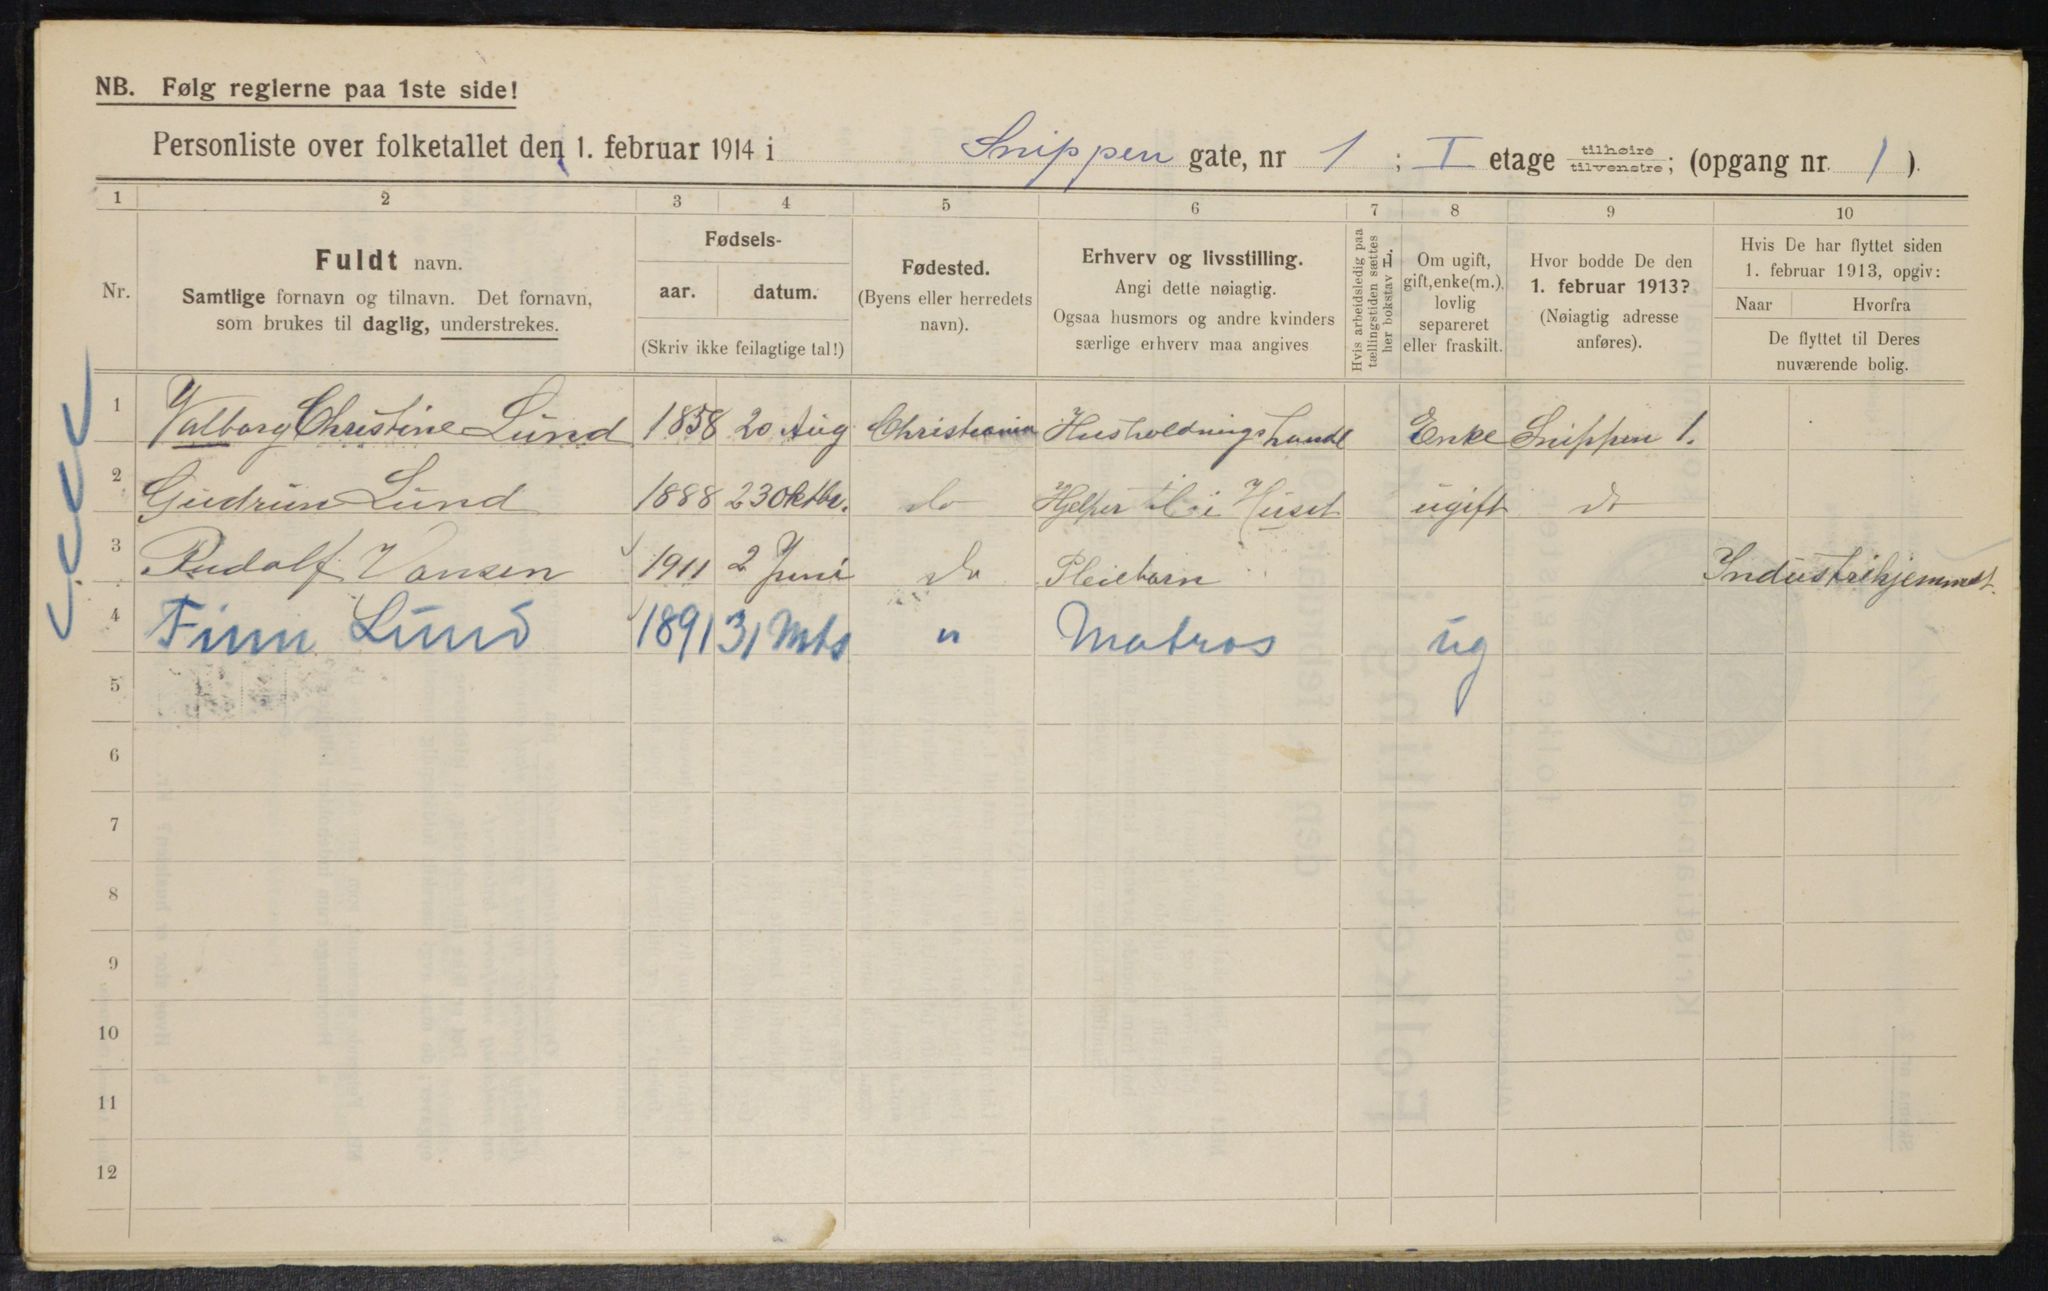 NB. Følg reglerne paa 1ste side!
Personliste over folketallet den 1. februar 1914 i Snippen gate, nr 1 ; I etage tilhøire tilvenstre; (opgang nr. 1 ).
1 2 3 4 5 6 7 8 9 10
Nr.
Fuldt navn.
Samtlige fornavn og tilnavn. Det fornavn,
som brukes til daglig, understrekes.
Fødsels-
aar. datum.
(Skriv ikke feilagtige tal!)
Fødested.
(Byens eller herredets
navn).
Erhverv og livsstilling.
Angi dette nøiagtig.
Ogsaa husmors og andre kvinders
særlige erhverv maa angives
Hvis arbeidsledig paa
tællingstiden sættes
her bokstav L.
Om ugift,
gift, enke(m.),
lovlig
separeret
eller fraskilt.
Hvor bodde De den
1. februar 1913?
(Nøiagtig adresse
anføres).
Hvis De har flyttet siden
1. februar 1913, opgiv:
Naar Hvorfra
De flyttet til Deres
nuværende bolig.
1 Valborg Christine Lund 1858 20 Aug Christiania Husholdningshandl Enke Snippen 1.
2 Gudrun Lund 1888 23 Oktbr. do Hjelper til i Huset ugift do
3 Rudolf 1911 2 Juni do Pleiebarn Industrihjemmet.
4 Finn Lund 1891 31 Mts " Matros ug
5
6
7
8
9
10
11
12